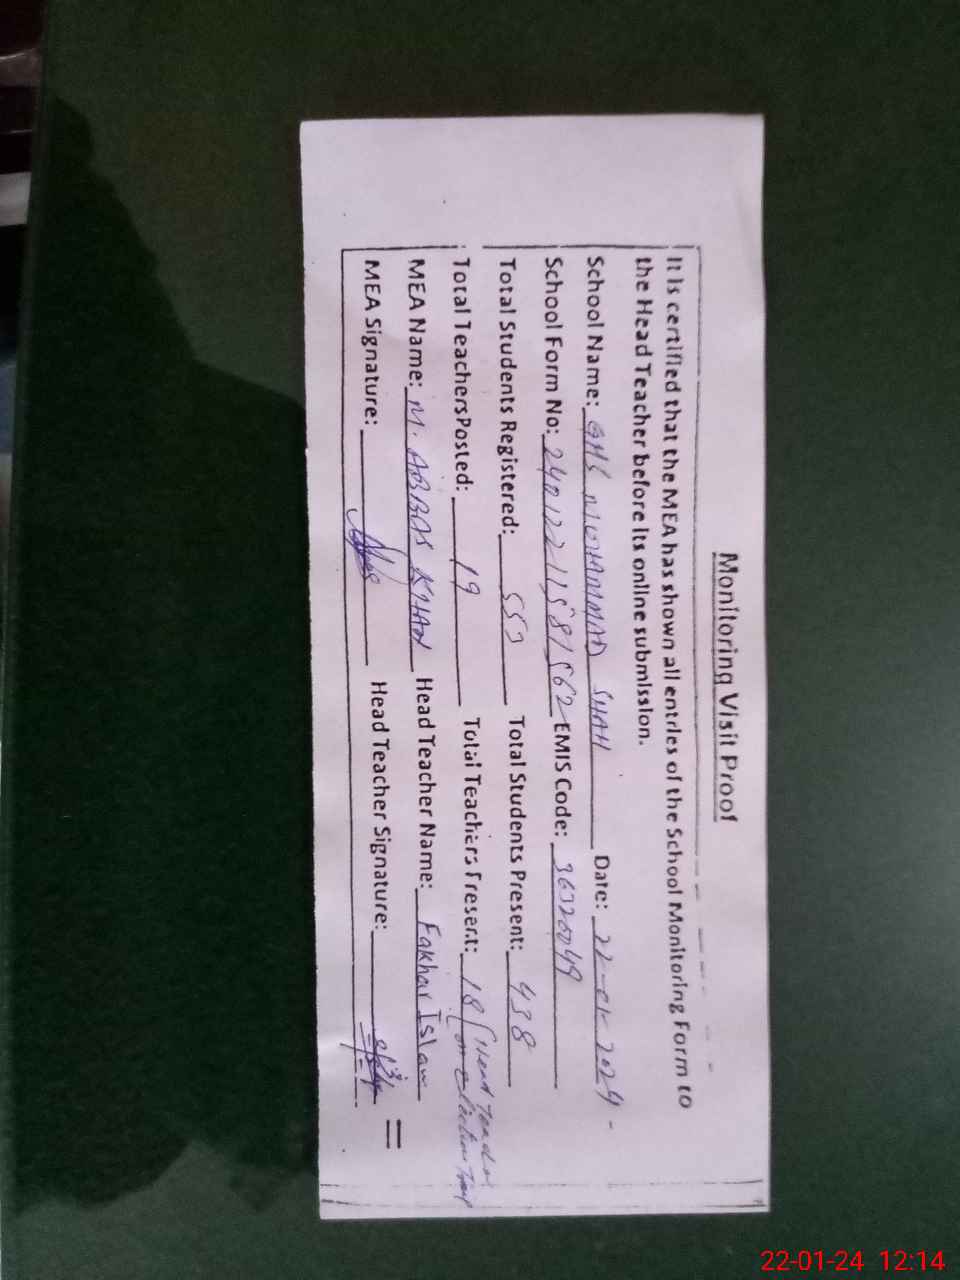 Monitoring Visit Proof
It is certified that the MEA has shown all entries of the School Monitoring Form to
the Head Teacher before its online submission.
School Name: GHS MUHAMMAD SHAH Date: 22-01-2024
School Form No: EMIS Code:
Total Students Registered: Total Students Present: 438
Total Teachers Posted: 19 Total Teachers Present: 18 (Head Teacher
on election
MEA Name: M. ABBAS KHAN Head Teacher Name: Fakhar Islam
MEA Signature: Head Teacher Signature:
22-01-24 12:14